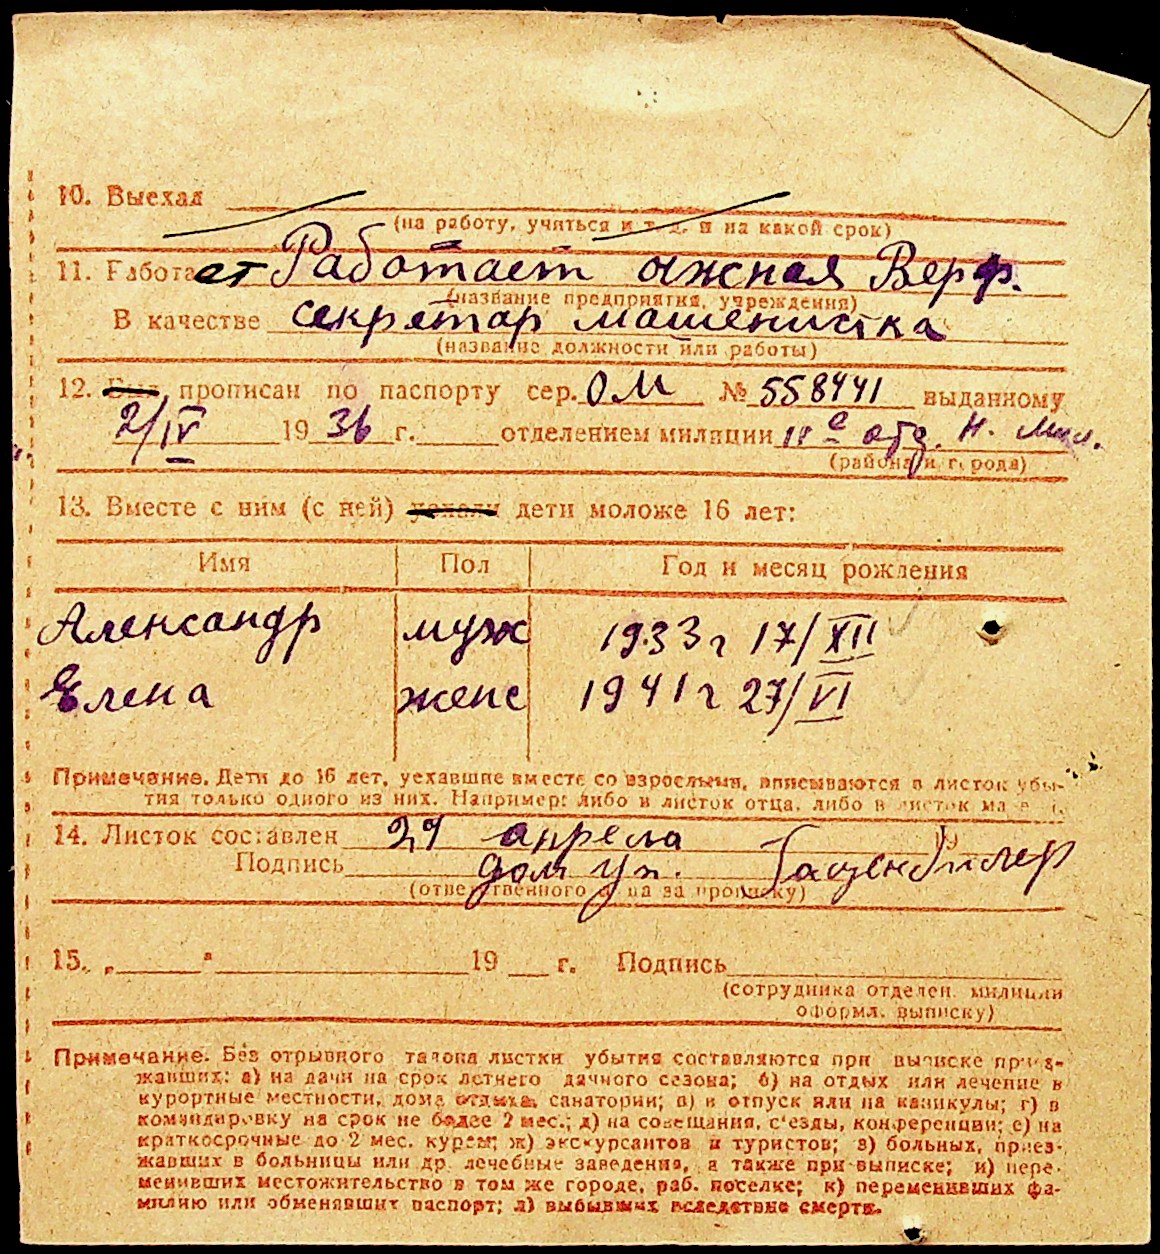 10. Выехал
(на работу, учиться и т. д. и на какой срок)
11. Работает Работает южная Верф.
(название предприятия, учреждения)
В качестве секретар машенистка
(название должности или работы)
12. Был прописан по паспорту сер. ОМ № 558441 выданному
2/IV 1936 г. отделением милиции отд. Н. Мил.
(района и города)
13. Вместе с ним (с ней) уехали дети моложе 16 лет:
Имя Пол Год и месяц рождения
Александр муж 1933 г 17/XII
Елена женс 1941 г 27/VI
Примечание. Дети до 16 лет, уехавшие вместе со взрослыми, вписываются в листок убы-
тия только одного из них. Например: либо в листок отца, либо в листок ма
14. Листок составлен 29 апреля
Подпись Дом уп.
(ответственного лица за прописку)
15. „ " 19 г. Подпись
(сотрудника отделен. милиции
оформл. выписку)
Примечание. Без отрывного талона листки убытия составляются при выписке приез-
жавших: а) на дачи на срок летнего дачного сезона; б) на отдых или лечение в
курортные местности, дома отдыха, санатории; в) в отпуск или на каникулы; г) в
командировку на срок не более 2 мес.; д) на совещания, с'езды, конференции; е) на
краткосрочные до 2 мес. курсы; ж) экскурсантов и туристов; з) больных, приез-
жавших в больницы или др. лечебные заведения, а также при выписке; и) пере-
менивших местожительство в том же городе, раб. поселке; к) переменивших фа-
милию или обменявших паспорт; л) выбывших вследствие смерти.